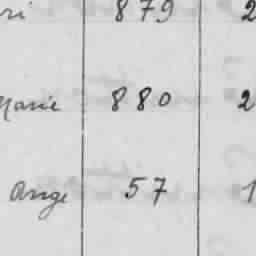 ri 879 2
Marie 880 2
Ange 57 1